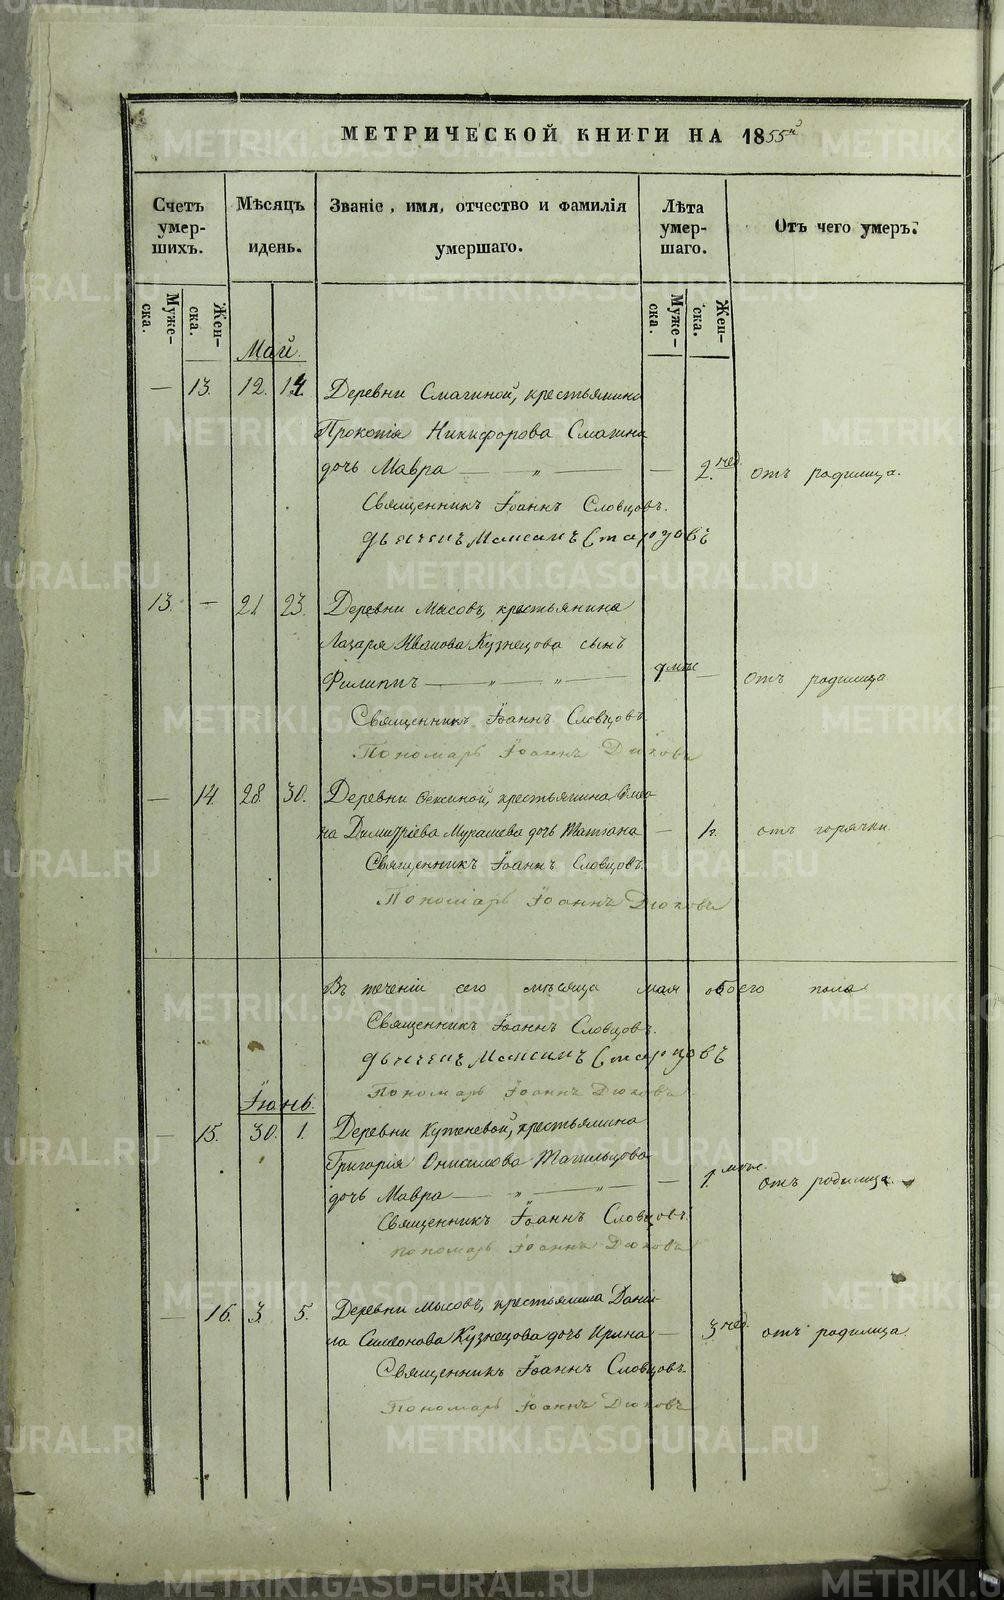 МЕТРИЧЕСКОЙ КНИГИ НА 1855й
Счетъ умер-шихъ. Мѣсяцъ идень. Званіе, имя, отчество и фамилія умершаго. Лѣта умер-шаго. Отъ чего умеръ.
Муже-ска. Жен-ска. Муже-ска. Жен-ска.
Май.
— 13. 12. 14. Деревни Смагиной, крестьянина
Прокопія Никифорова Смагина
дочь Мавра — „ — — 2. нед. отъ родимца.
Священникъ Іоаннъ Словцовъ.
дьячекъ Максимъ Стародовъ
13. — 21 23. Деревни Мысовъ, крестьянина
Лазаря Иванова Кузнецова сынъ
Филиппъ — „ — „ — мѣс — отъ родимца
Священникъ Іоаннъ Словцовъ
Пономарь Іоаннъ Дюковъ
— 14. 28. 30. Деревни крестьянина
на Димитріева Мурашева дочь Татіана — 1г. отъ горячки.
Священникъ Іоаннъ Словцовъ.
Пономарь Іоаннъ Дюковъ
Въ теченіи сего мѣсяца мая обоего пола
Священникъ Іоаннъ Словцовъ.
дьячекъ Максимъ
Пономарь Іоаннъ Дюковъ
Іюнь.
— 15. 30. 1. Деревни крестьянина
Григорія Онисимова Тагильцова
дочь Мавра — „ — „ — — 1. мѣс. отъ родимца.
Священникъ Іоаннъ Словцовъ.
пономарь Іоаннъ Дюковъ
— 16. 3. 5. Деревни Мысовъ, крестьянина Дани-
ла Симеонова Кузнецова дочь Ирина — 3 нед. отъ родимца.
Священникъ Іоаннъ Словцовъ.
Пономарь Іоаннъ Дюковъ
METRIKI.GASO-URAL.RU